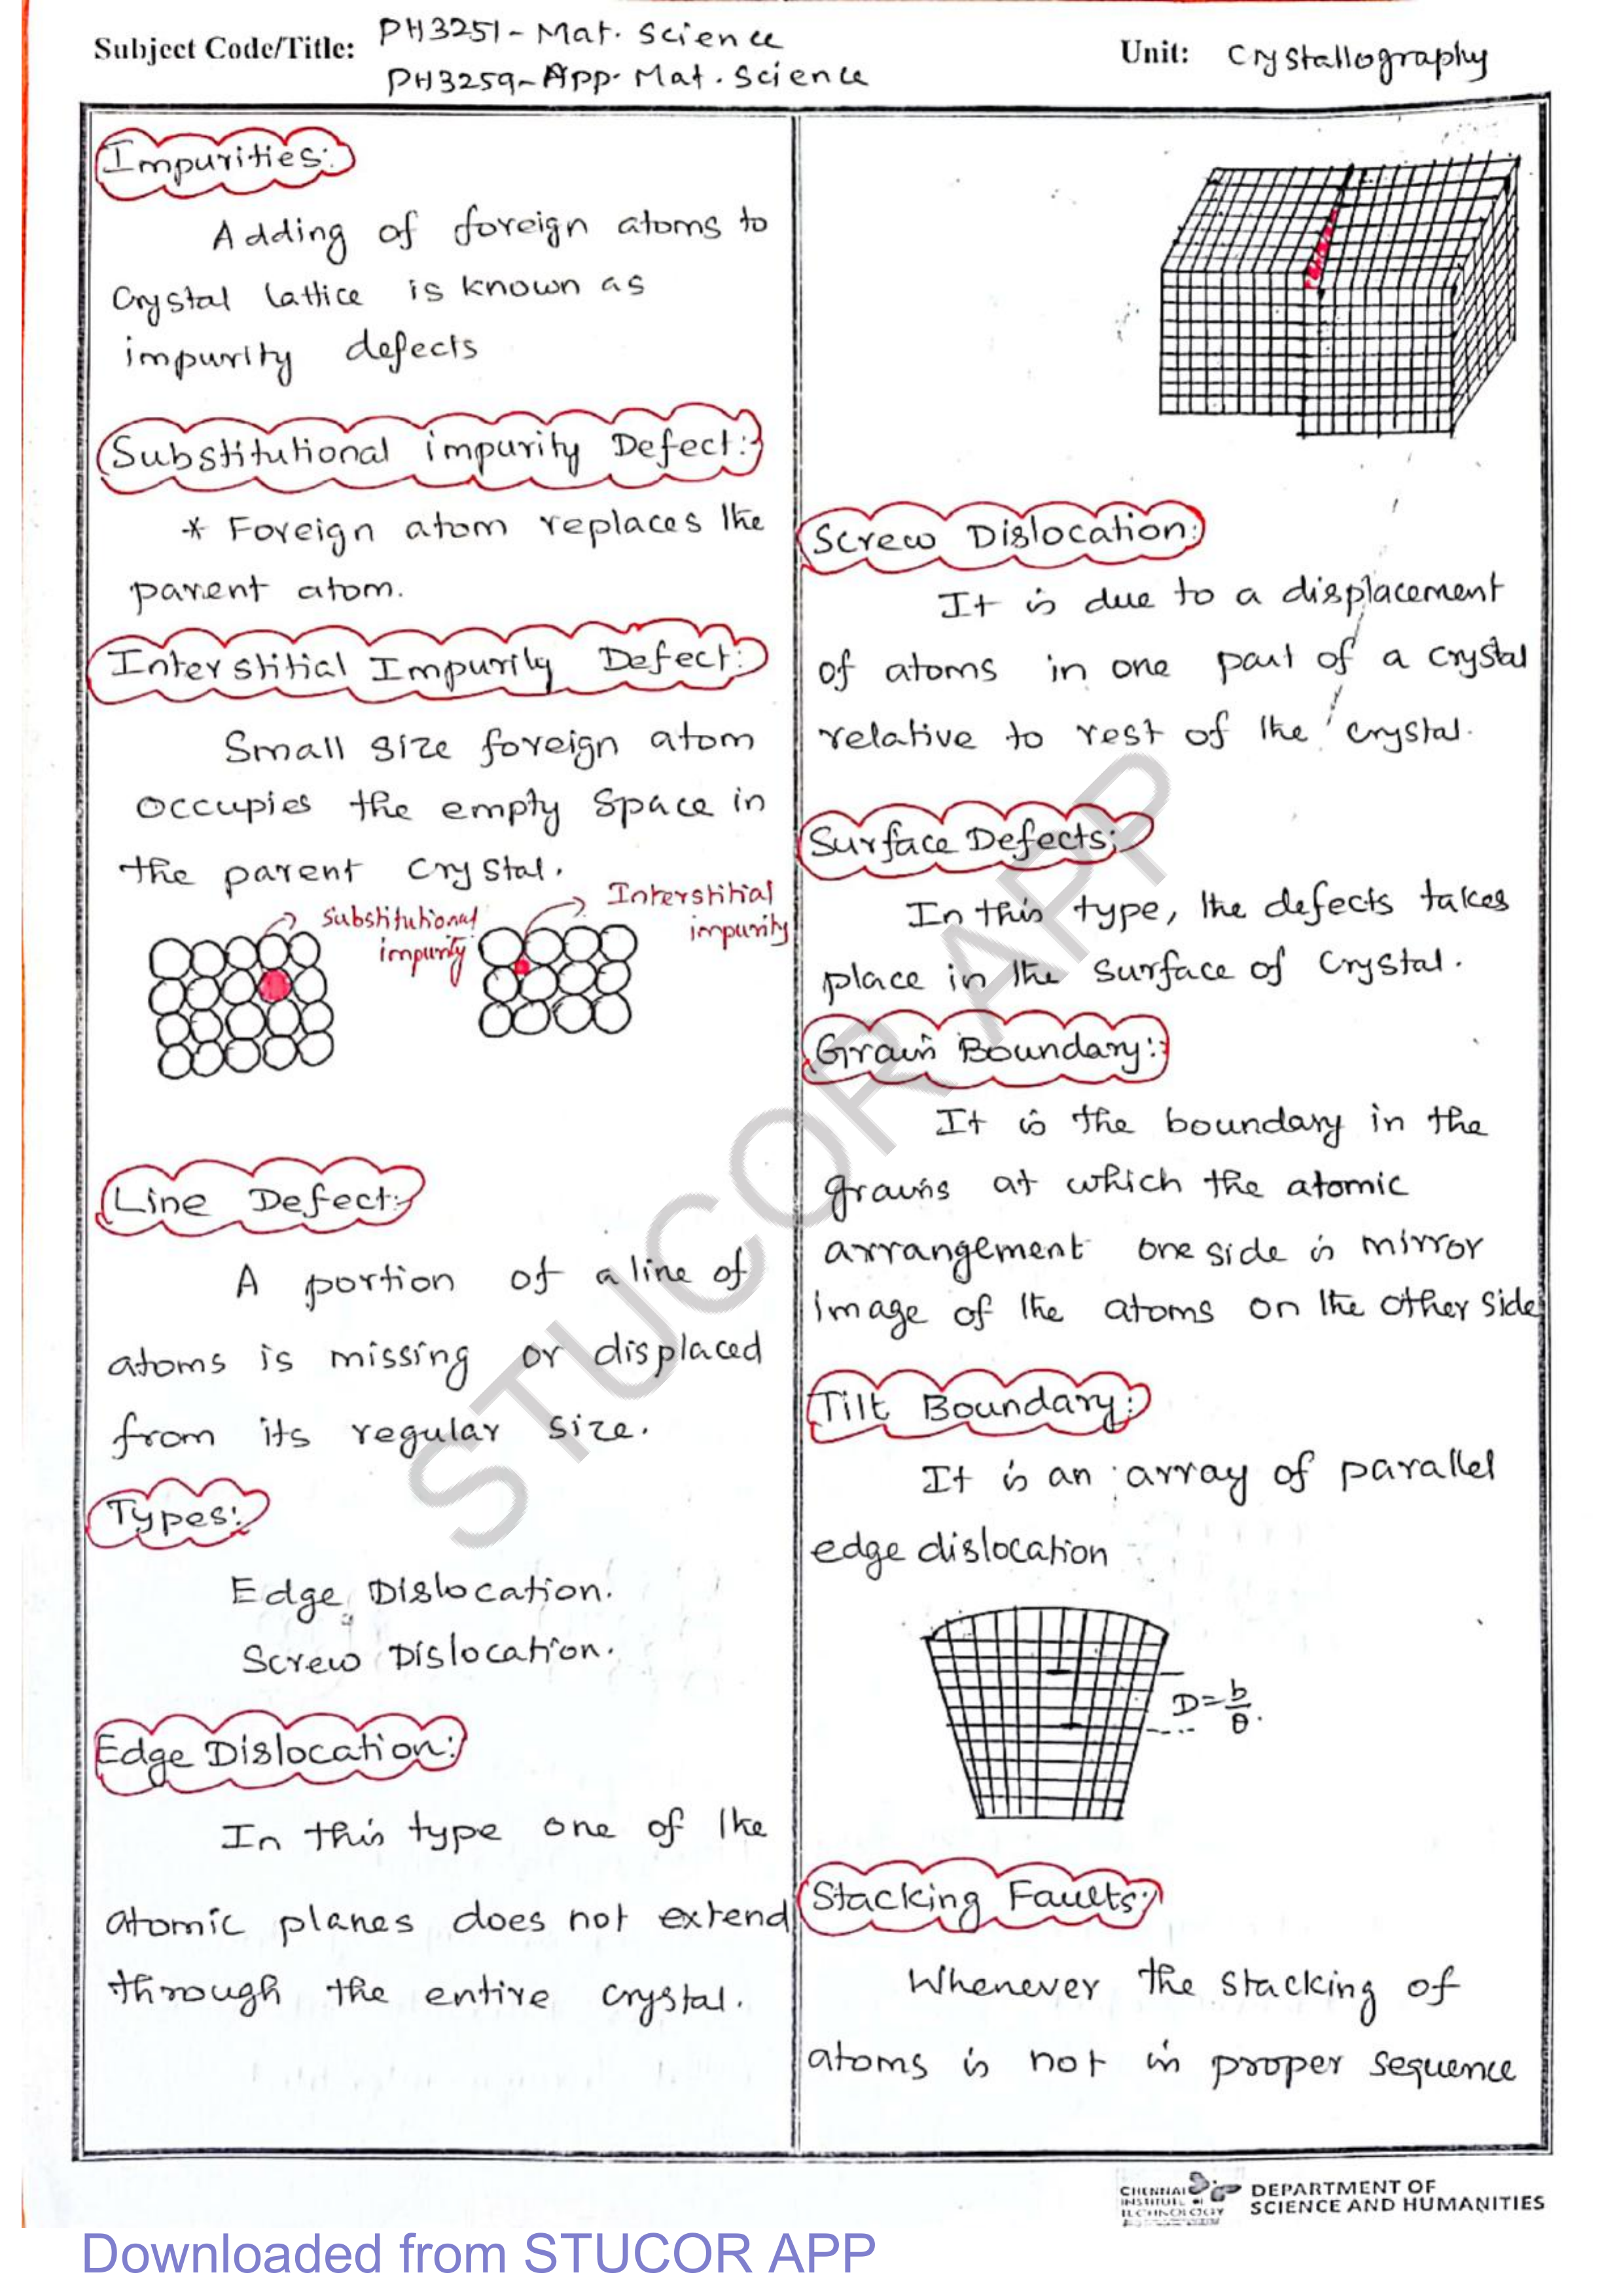 Subject Code/Title: PH3251 - Mat. Science
PH3259 - App. Mat. Science
Unit: Crystallography
Impurities:
Adding of foreign atoms to
Crystal lattice is known as
impurity defects
Substitutional impurity Defect:
* Foreign atom replaces the
parent atom.
Interstitial Impurity Defect:
Small size foreign atom
occupies the empty space in
the parent crystal.
Substitutional
impurity
Interstitial
impurity
Line Defect:
A portion of a line of
atoms is missing or displaced
from its regular size.
Types:
Edge Dislocation.
Screw Dislocation.
Edge Dislocation:
In this type one of the
atomic planes does not extend
through the entire crystal.
Screw Dislocation:
It is due to a displacement
of atoms in one part of a crystal
relative to rest of the crystal.
Surface Defects:
In this type, the defects takes
place in the surface of crystal.
Grain Boundary:
It is the boundary in the
grains at which the atomic
arrangement one side is mirror
image of the atoms on the other side
Tilt Boundary:
It is an array of parallel
edge dislocation
D = b/θ.
Stacking Faults:
Whenever the stacking of
atoms is not in proper sequence
STUCOR APP
CHENNAI
INSTITUTE OF
TECHNOLOGY
DEPARTMENT OF
SCIENCE AND HUMANITIES
Downloaded from STUCOR APP